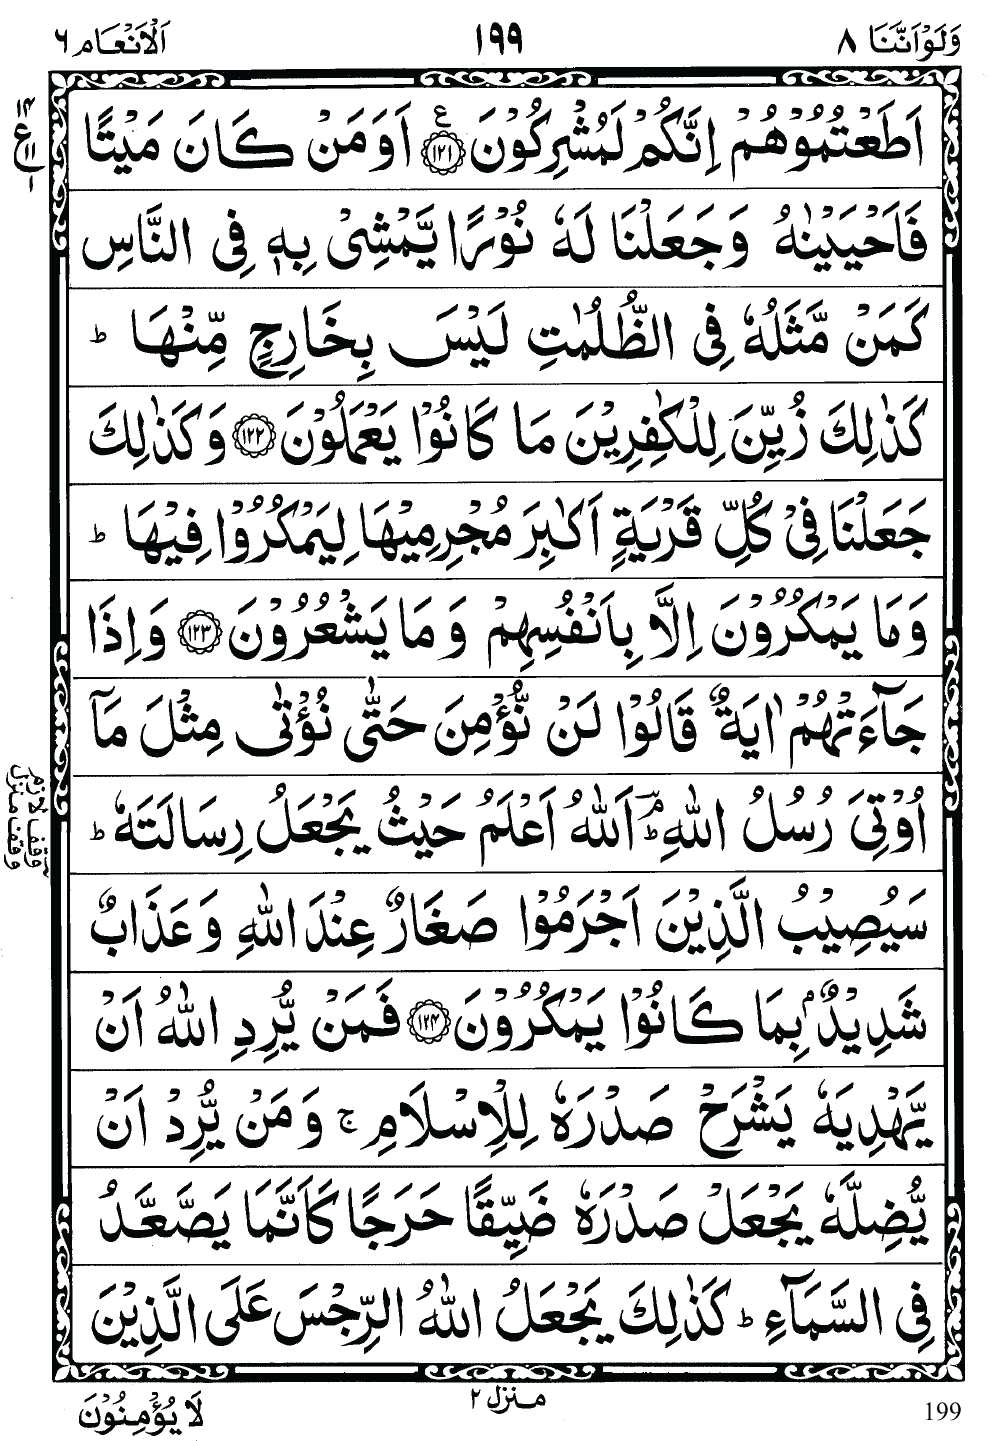 وَلَوْاَنَّنَا ٨
١٩٩
اَلْاَنْعَام ٦
اَطَعْتُمُوْهُمْ اِنَّكُمْ لَمُشْرِكُوْنَ ع ﴿١٢١﴾ اَوَمَنْ كَانَ مَيْتًا
١٤
ع
١١
١
فَاَحْيَيْنٰهُ وَجَعَلْنَا لَهٗ نُوْرًا يَّمْشِىْ بِهٖ فِى النَّاسِ
كَمَنْ مَّثَلُهٗ فِى الظُّلُمٰتِ لَيْسَ بِخَارِجٍ مِّنْهَا ؕ
كَذٰلِكَ زُيِّنَ لِلْكٰفِرِيْنَ مَا كَانُوْا يَعْمَلُوْنَ ﴿١٢٢﴾ وَكَذٰلِكَ
جَعَلْنَا فِىْ كُلِّ قَرْيَةٍ اَكٰبِرَ مُجْرِمِيْهَا لِيَمْكُرُوْا فِيْهَا ؕ
وَمَا يَمْكُرُوْنَ اِلَّا بِاَنْفُسِهِمْ وَمَا يَشْعُرُوْنَ ﴿١٢٣﴾ وَاِذَا
جَآءَتْهُمْ اٰيَةٌ قَالُوْا لَنْ نُّؤْمِنَ حَتّٰى نُؤْتٰى مِثْلَ مَآ
اُوْتِىَ رُسُلُ اللّٰهِ ؕۘ اَللّٰهُ اَعْلَمُ حَيْثُ يَجْعَلُ رِسَالَتَهٗ ؕ
وقف لازم
وقف منزل
سَيُصِيْبُ الَّذِيْنَ اَجْرَمُوْا صَغَارٌ عِنْدَ اللّٰهِ وَعَذَابٌ
شَدِيْدٌۢ بِمَا كَانُوْا يَمْكُرُوْنَ ﴿١٢٤﴾ فَمَنْ يُّرِدِ اللّٰهُ اَنْ
يَّهْدِيَهٗ يَشْرَحْ صَدْرَهٗ لِلْاِسْلَامِ ۚ وَمَنْ يُّرِدْ اَنْ
يُّضِلَّهٗ يَجْعَلْ صَدْرَهٗ ضَيِّقًا حَرَجًا كَاَنَّمَا يَصَّعَّدُ
فِى السَّمَآءِ ؕ كَذٰلِكَ يَجْعَلُ اللّٰهُ الرِّجْسَ عَلَى الَّذِيْنَ
لَا يُؤْمِنُوْنَ
منزل ٢
199